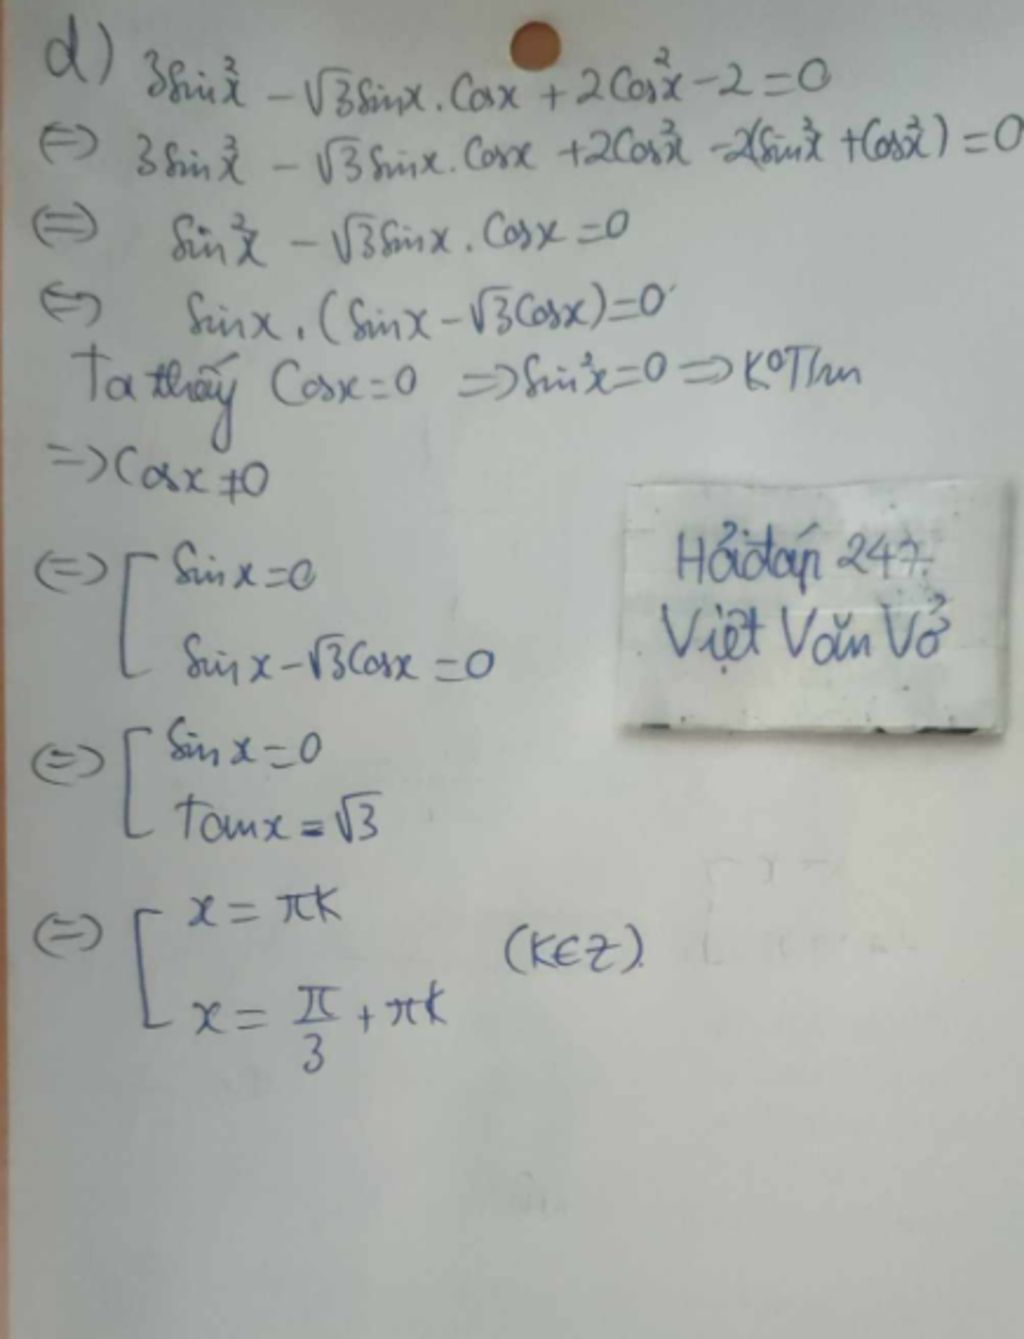 d) 3sin²x - √3sinx.Cosx + 2Cos²x - 2 = 0
⇔ 3sin²x - √3sinx.Cosx + 2Cos²x - 2(sin²x + Cos²x) = 0
⇔ sin²x - √3sinx.Cosx = 0
⇔ sinx.(sinx - √3Cosx) = 0
Ta thấy Cosx = 0 ⇒ sin²x = 0 ⇒ K⁰Thm
⇒ Cosx ≠ 0
⇔ [ sinx = 0
sinx - √3Cosx = 0
Hỏi đáp 247.
Việt Văn Vở
⇔ [ sinx = 0
tanx = √3
⇔ [ x = πk
(k∈Z).
x = π/3 + πk